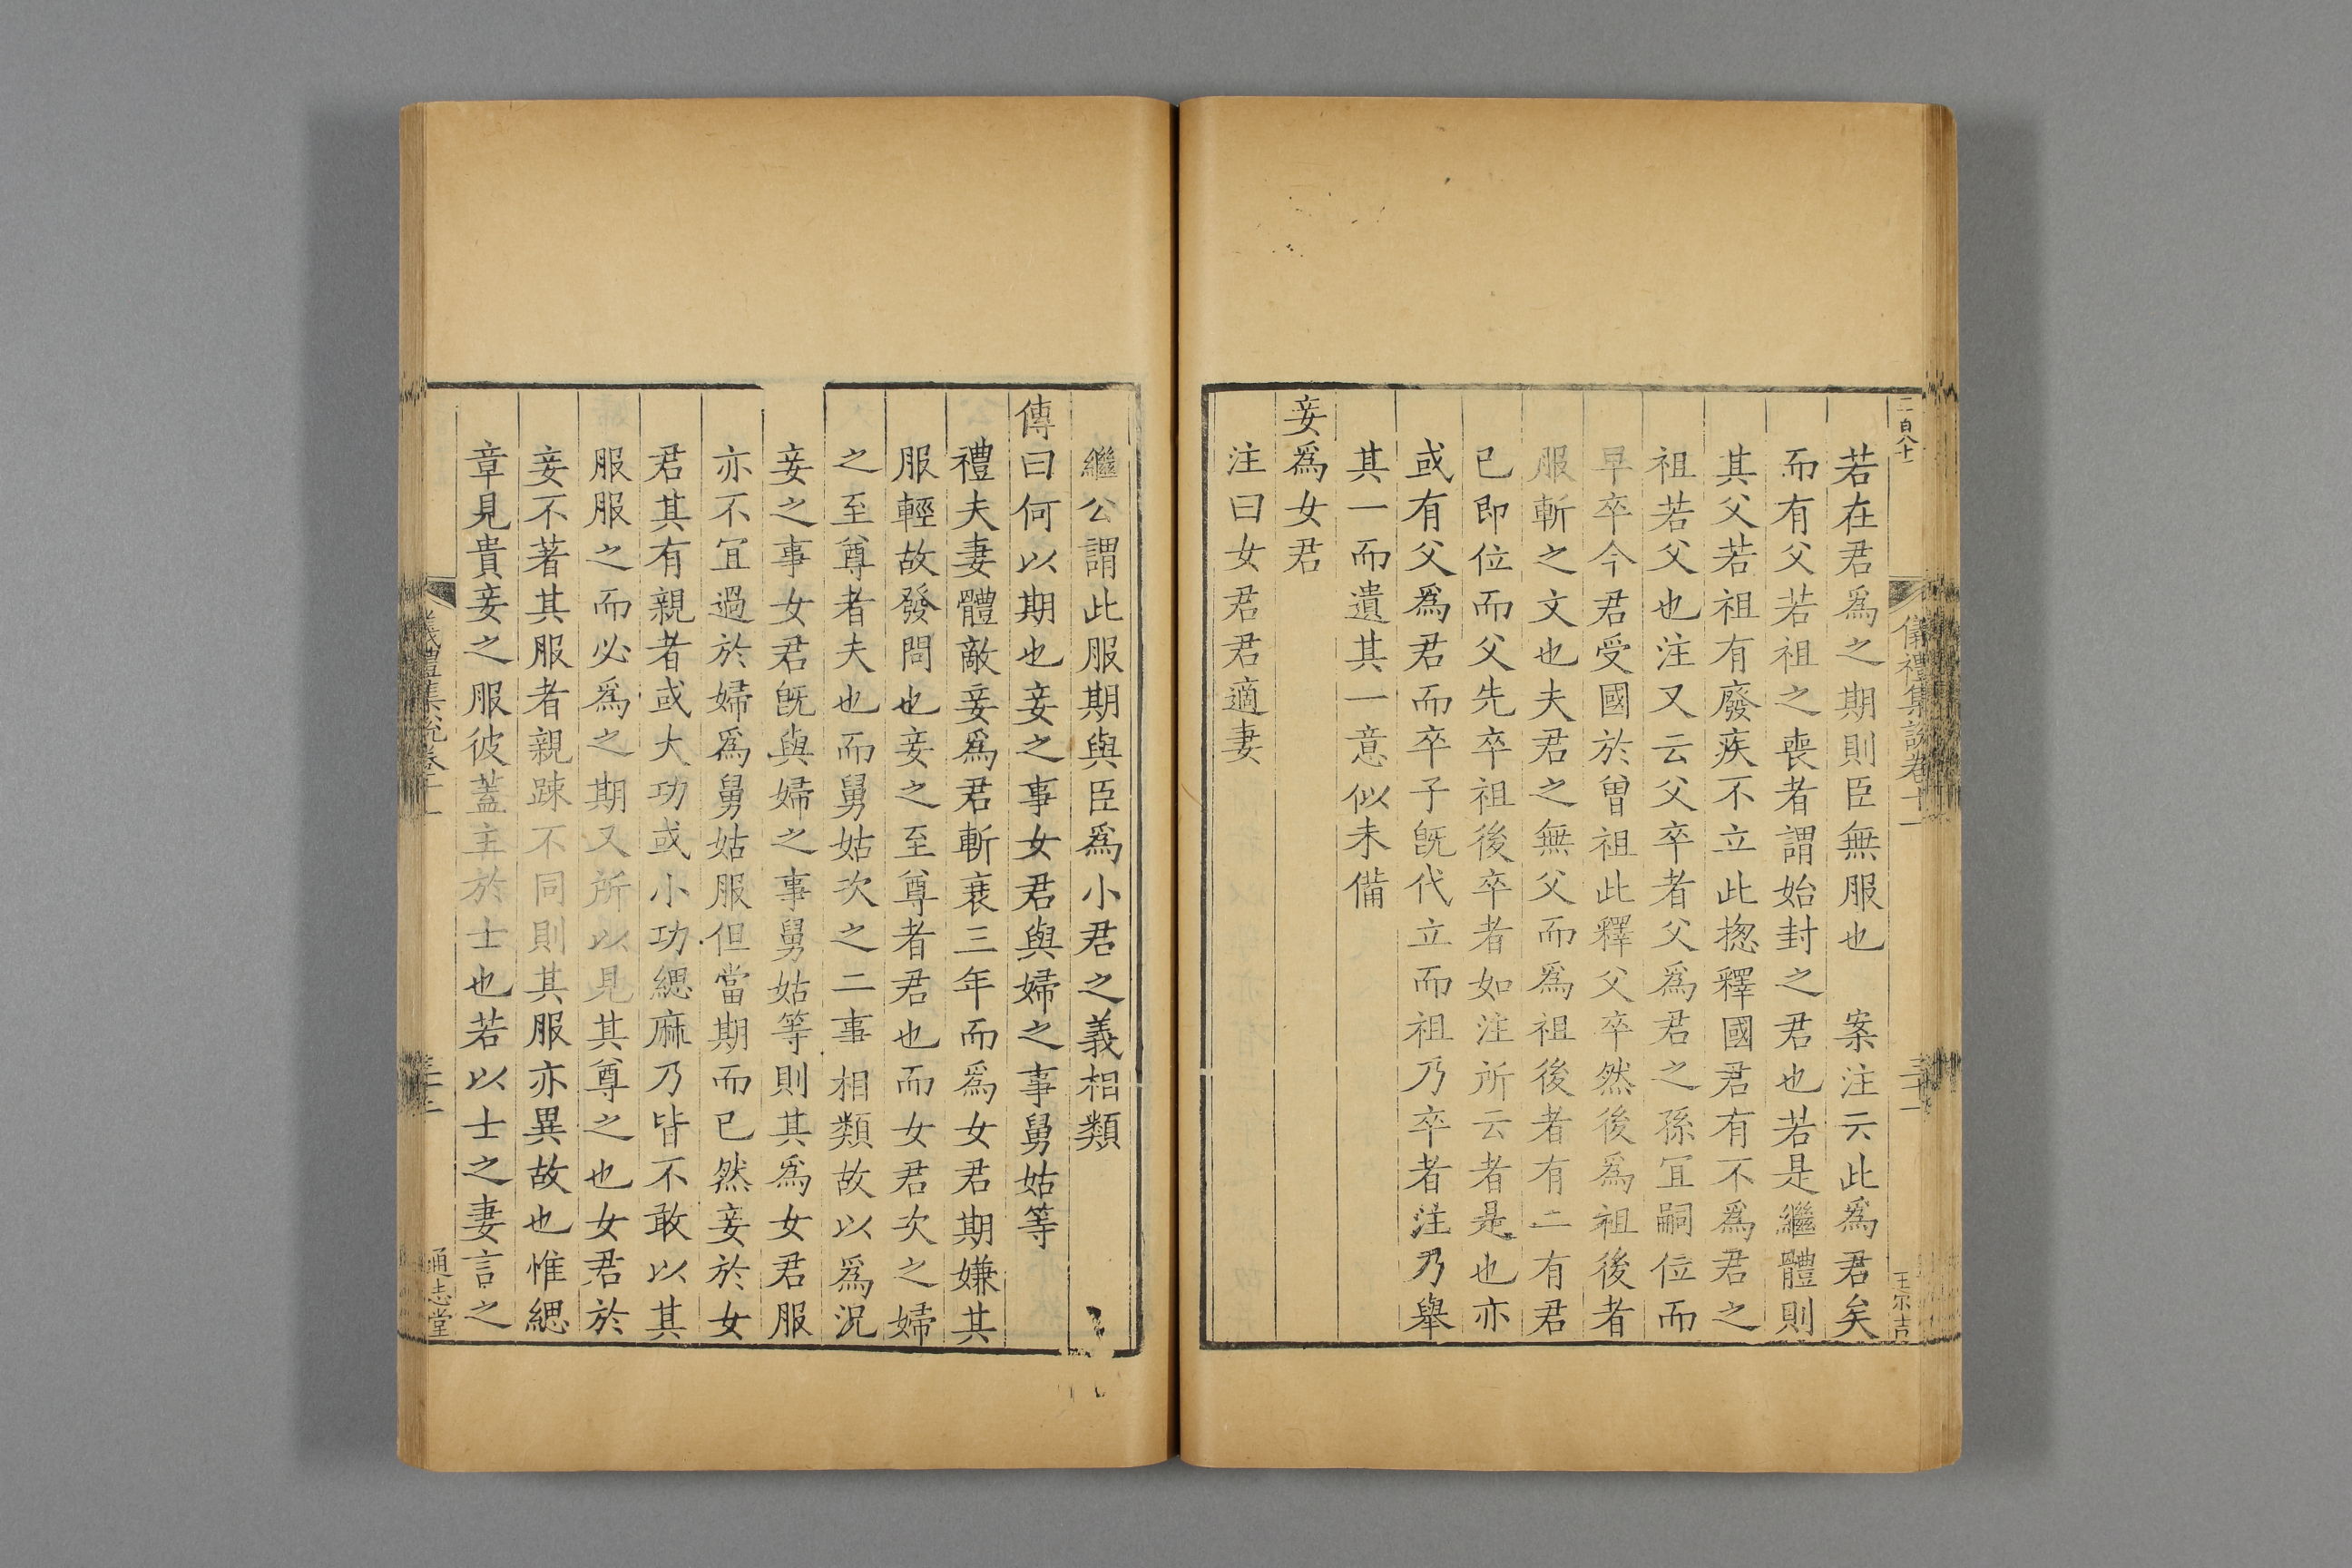 二百八十
儀禮集說卷十一
王宗吉
若在君爲之期則臣無服也　案注云此爲君矣
而有父若祖之喪者謂始封之君也若是繼體則
其父若祖有廢疾不立此揔釋國君有不爲君之
祖若父也注又云父卒者父爲君之孫冝嗣位而
早卒今君受國於曾祖此釋父卒然後爲祖後者
服斬之文也夫君之無父而爲祖後者有二有君
已即位而父先卒祖後卒者如注所云者是也亦
或有父爲君而卒子旣代立而祖乃卒者注乃舉
其一而遺其一意似未備
妾爲女君
注曰女君君適妻
繼公謂此服期與臣爲小君之義相類
傳曰何以期也妾之事女君與婦之事舅姑等
禮夫妻體敵妾爲君斬衰三年而爲女君期嫌其
服輕故發問也妾之至尊者君也而女君次之婦
之至尊者夫也而舅姑次之二事相類故以爲況
妾之事女君旣與婦之事舅姑等則其爲女君服
亦不冝過於婦爲舅姑服但當期而已然妾於女
君其有親者或大功或小功緦麻乃皆不敢以其
服服之而必爲之期又所以見其尊之也女君於
妾不著其服者親踈不同則其服亦異故也惟緦
章見貴妾之服彼蓋主於士也若以士之妻言之
儀禮集說卷十一
通志堂